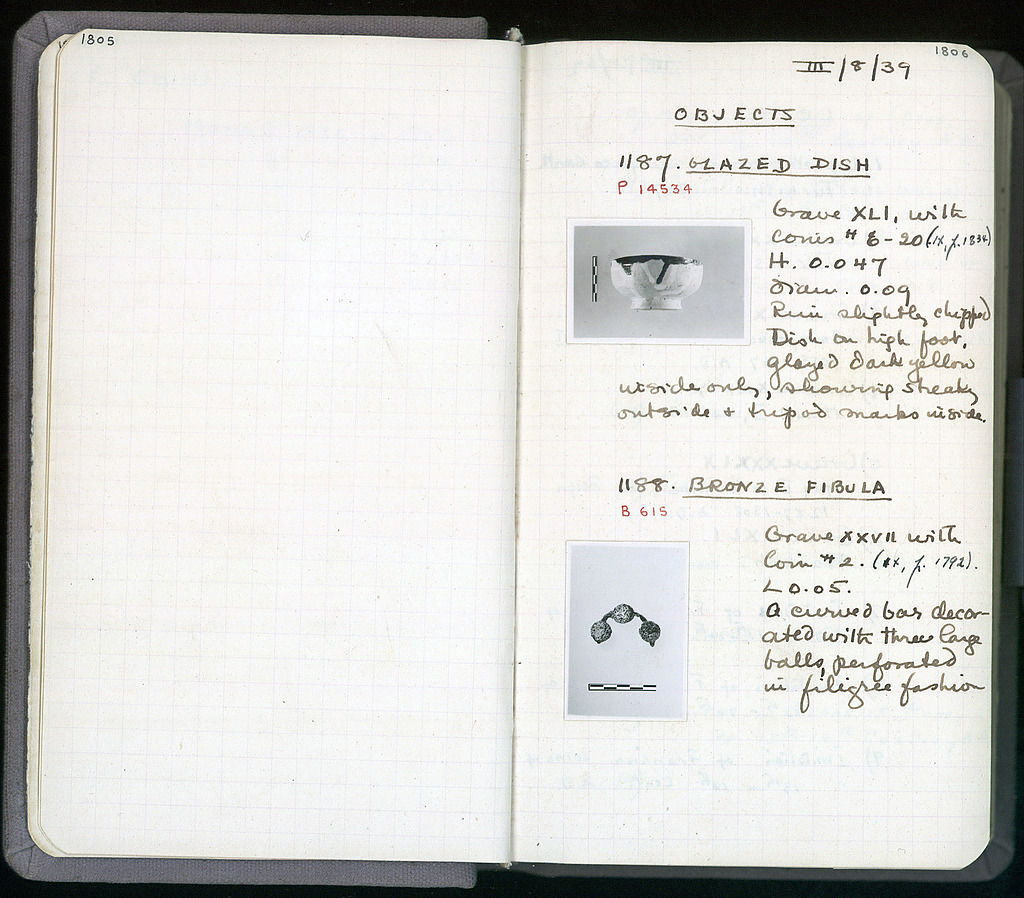 1805
1806
III/8/39
OBJECTS
1187. GLAZED DISH
P 14534
Grave XLI, with
Coins # 8-20 (IX, p. 1834)
H. 0.047
Diam. 0.09
Rim slightly chipped
Dish on high foot,
glazed dark yellow
inside only, showing streaky
outside + tripod marks inside.
1188. BRONZE FIBULA
B 615
Grave XXVII with
Coin # 2. (IX, p. 1792).
L 0.05.
A curved bar decor-
ated with three large
balls, perforated
in filigree fashion